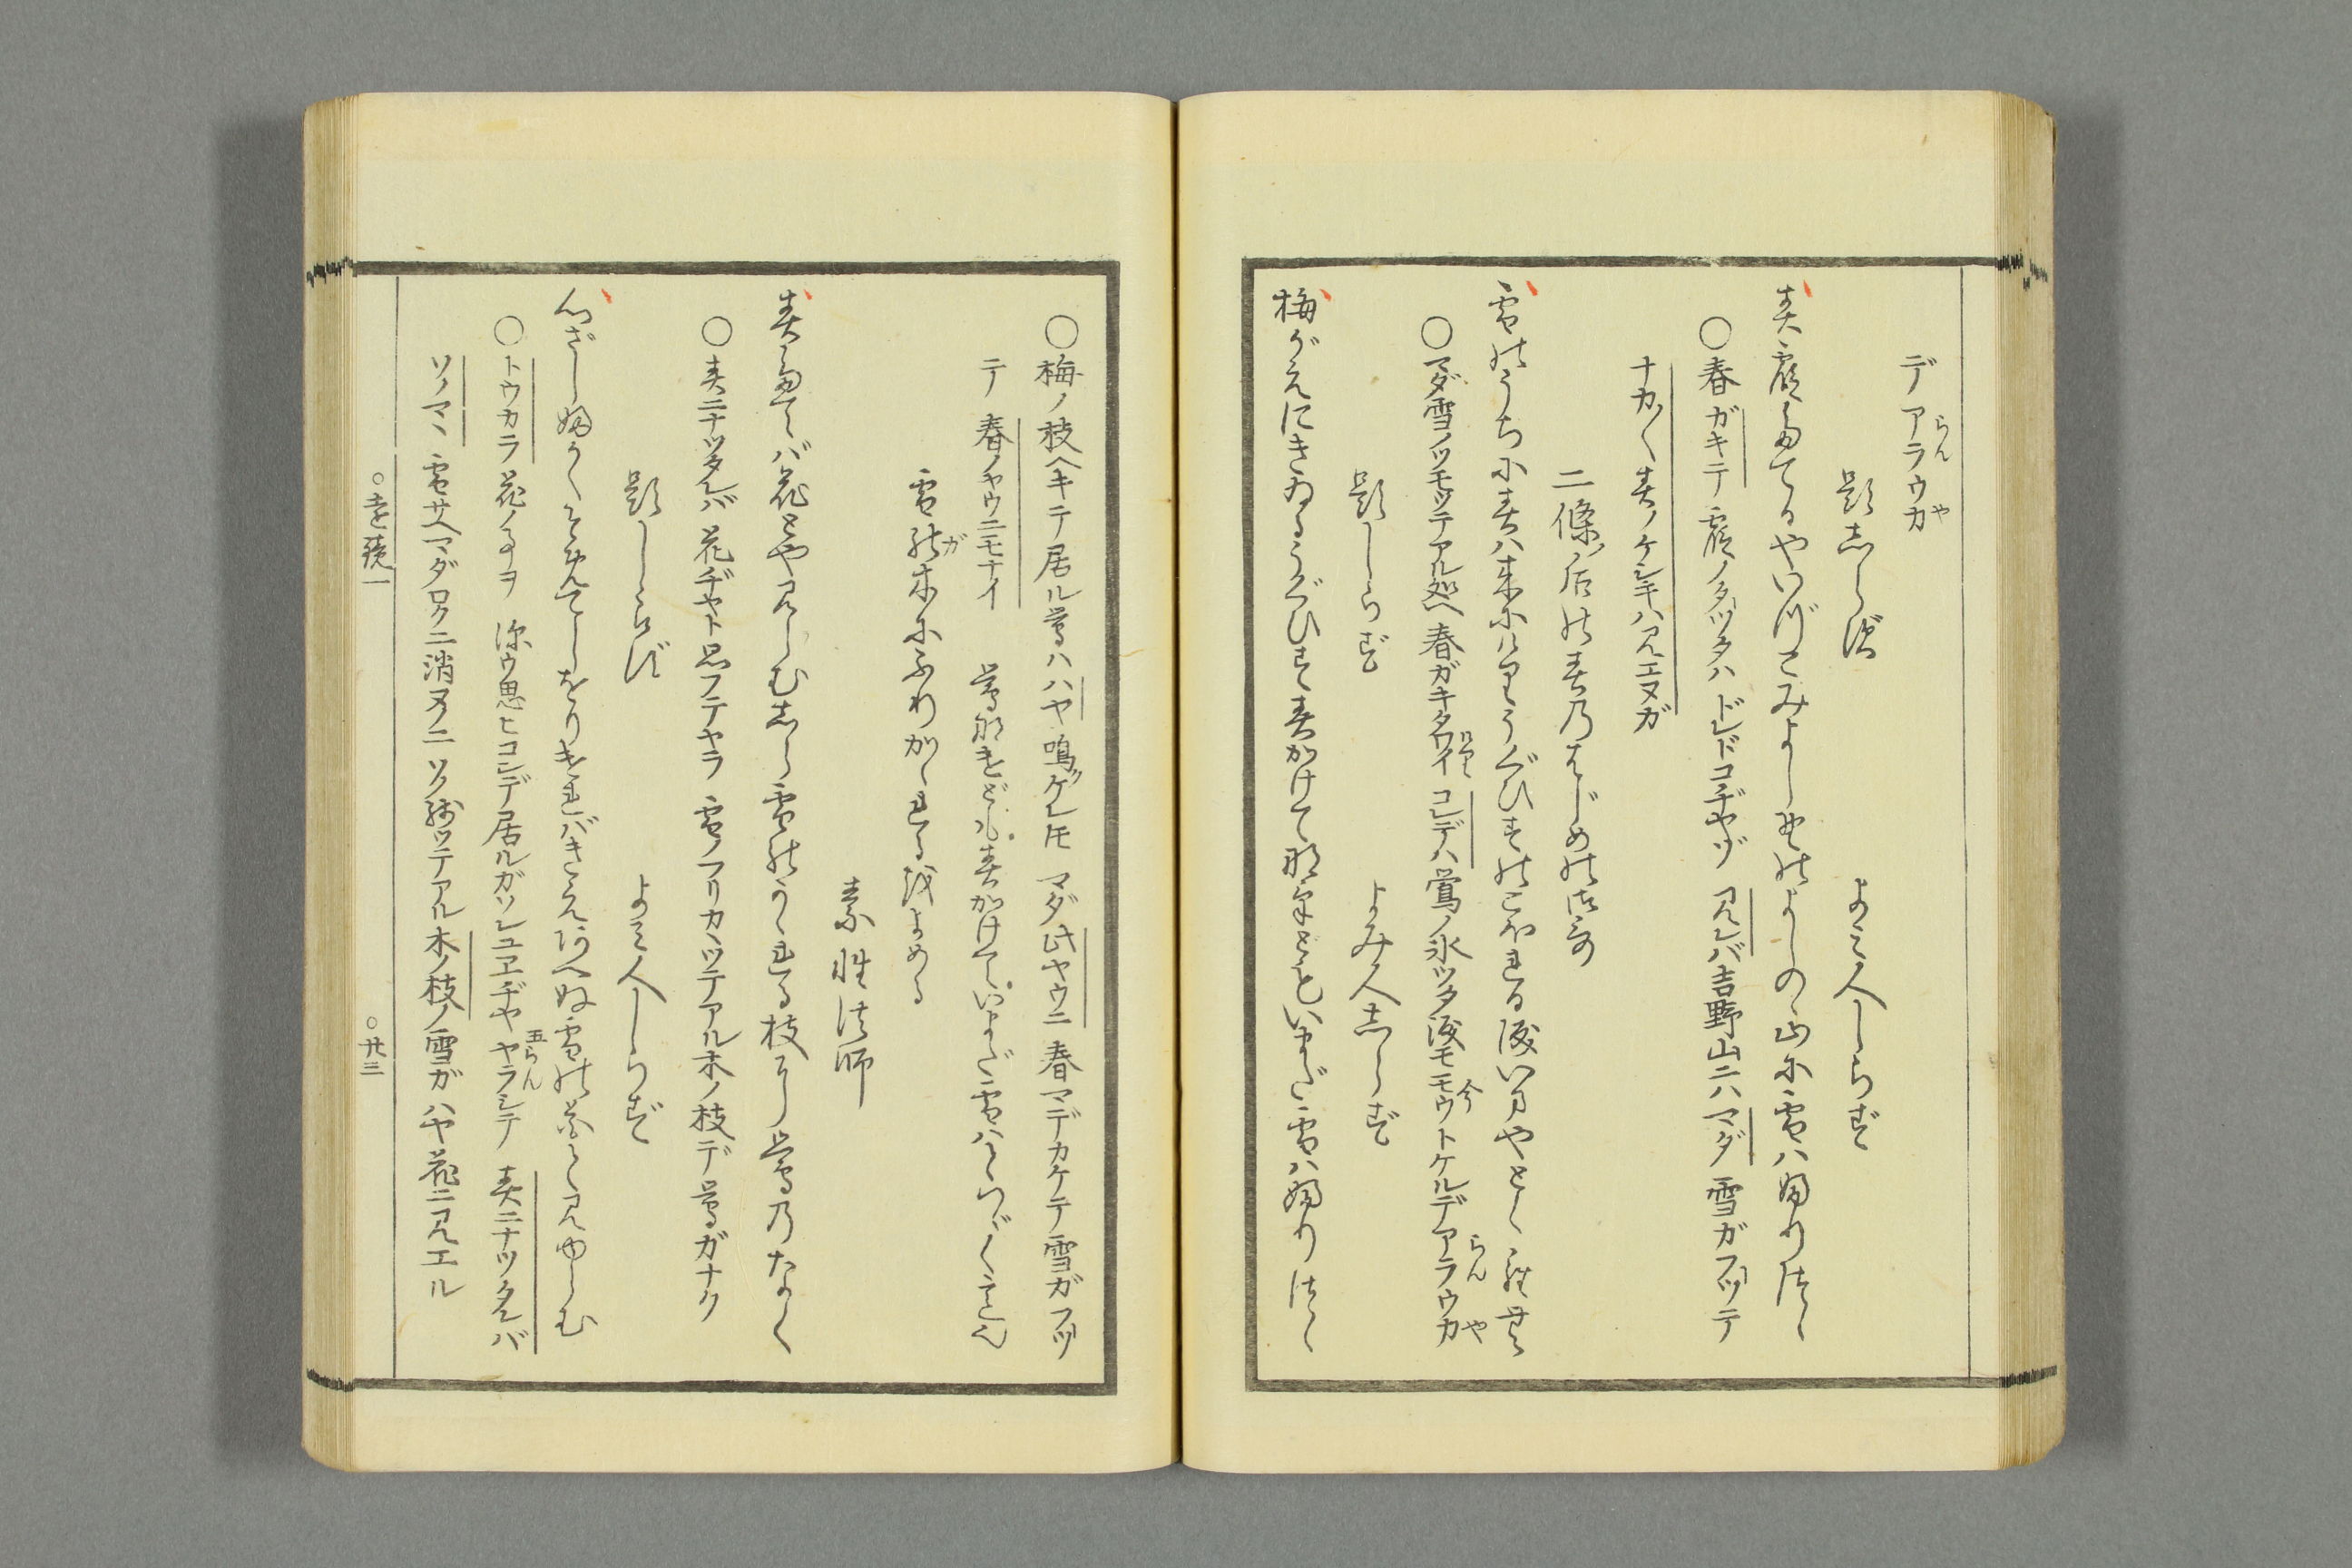 デアラウカ
らん
や
題しらず
よみ人しらず
春霞たてるやいづこみよしのゝよしのゝ山に雪はふりつゝ
○春ガキテ 霞ノタツタハ ドレドコヂヤゾ 見レバ吉野山ニハ マダ 雪ガフツテ
ナカ〳〵春ノケシキハ見エヌガ
二條ノ后の春のはじめの御哥
雪のうちに春は来にけりうぐひすのこほれる涙いまやとくらむ
○マダ雪ノツモツテアル処ヘ 春ガキタワイ コレデハ 鶯ノ氷ツタ涙モ モウトケルデアラウカ
けり
今
らん
や
題しらず
よみ人しらず
梅がえにきゐるうぐひす春かけて鳴けどもいまだ雪はふりつゝ
○梅ノ枝ヘキテ居ル鶯ハ ハヤ 鳴ケレドモ マダ此ヤウニ 春マデカケテ 雪ガフツ
テ 春ノヤウニモナイ
雪の木にふりかゝれるをよめる
ガ
素性法師
春たてば花とや見らむしら雪のかゝれる枝にうぐひすのなく
○春ニナツタレバ 花ヂヤト思フテヤラ 雪ノフリカヽツテアル木ノ枝デ 鶯ガナク
題しらず
よみ人しらず
心ざしふかくそめてしをりければきえあへぬ雪の花と見ゆらむ
○トウカラ 花ノ事ヲ 深ウ思ヒコンデ居ルガソレユヱヂヤヤラシテ 春ニナツタレバ
五らん
ソノマヽ 雪サヘマダロクニ消ヌノニ ソノ残ツテアル 木ノ枝ノ雪ガ ハヤ 花ニ見エル
○廿三